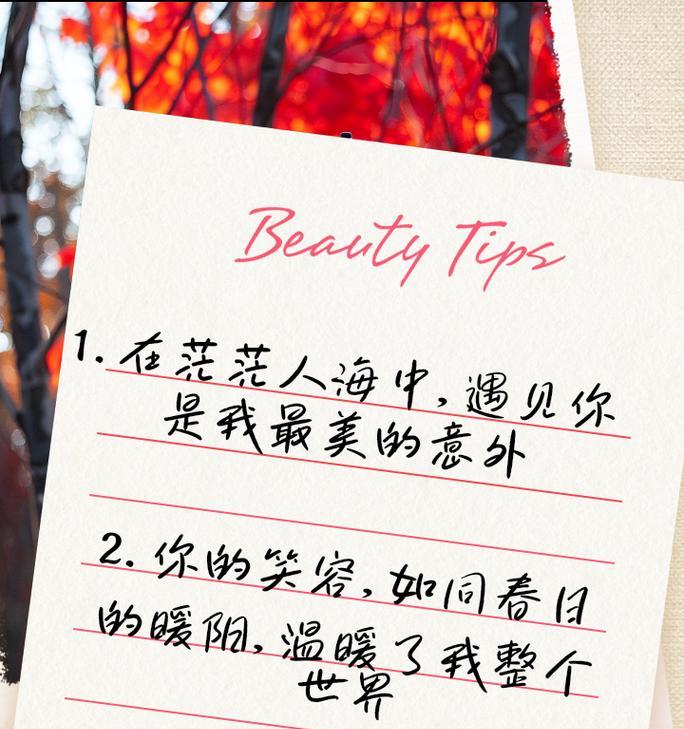 Beauty Tips
1. 在茫茫人海中,遇见你
是我最美的意外
2. 你的笑容,如同春日
的暖阳,温暖了我整个
世界